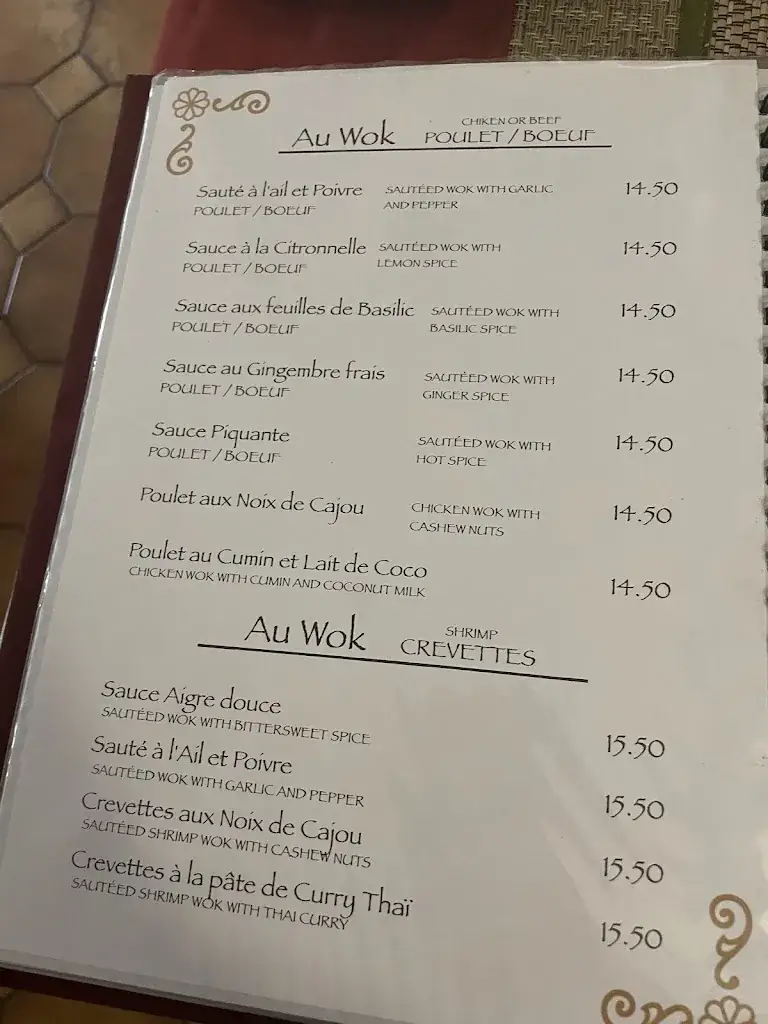 Au Wok CHIKEN OR BEEF
POULET / BOEUF
Sauté à l'ail et Poivre SAUTÉED WOK WITH GARLIC 14.50
POULET / BOEUF AND PEPPER
Sauce à la Citronnelle SAUTÉED WOK WITH 14.50
POULET / BOEUF LEMON SPICE
Sauce aux feuilles de Basilic SAUTÉED WOK WITH 14.50
POULET / BOEUF BASILIC SPICE
Sauce au Gingembre frais SAUTÉED WOK WITH 14.50
POULET / BOEUF GINGER SPICE
Sauce Piquante SAUTÉED WOK WITH 14.50
POULET / BOEUF HOT SPICE
Poulet aux Noix de Cajou CHICKEN WOK WITH 14.50
CASHEW NUTS
Poulet au Cumin et Lait de Coco
CHICKEN WOK WITH CUMIN AND COCONUT MILK 14.50
Au Wok SHRIMP
CREVETTES
Sauce Aigre douce
SAUTÉED WOK WITH BITTERSWEET SPICE 15.50
Sauté à l'Ail et Poivre
SAUTÉED WOK WITH GARLIC AND PEPPER 15.50
Crevettes aux Noix de Cajou
SAUTÉED SHRIMP WOK WITH CASHEW NUTS 15.50
Crevettes à la pâte de Curry Thaï
SAUTÉED SHRIMP WOK WITH THAI CURRY 15.50